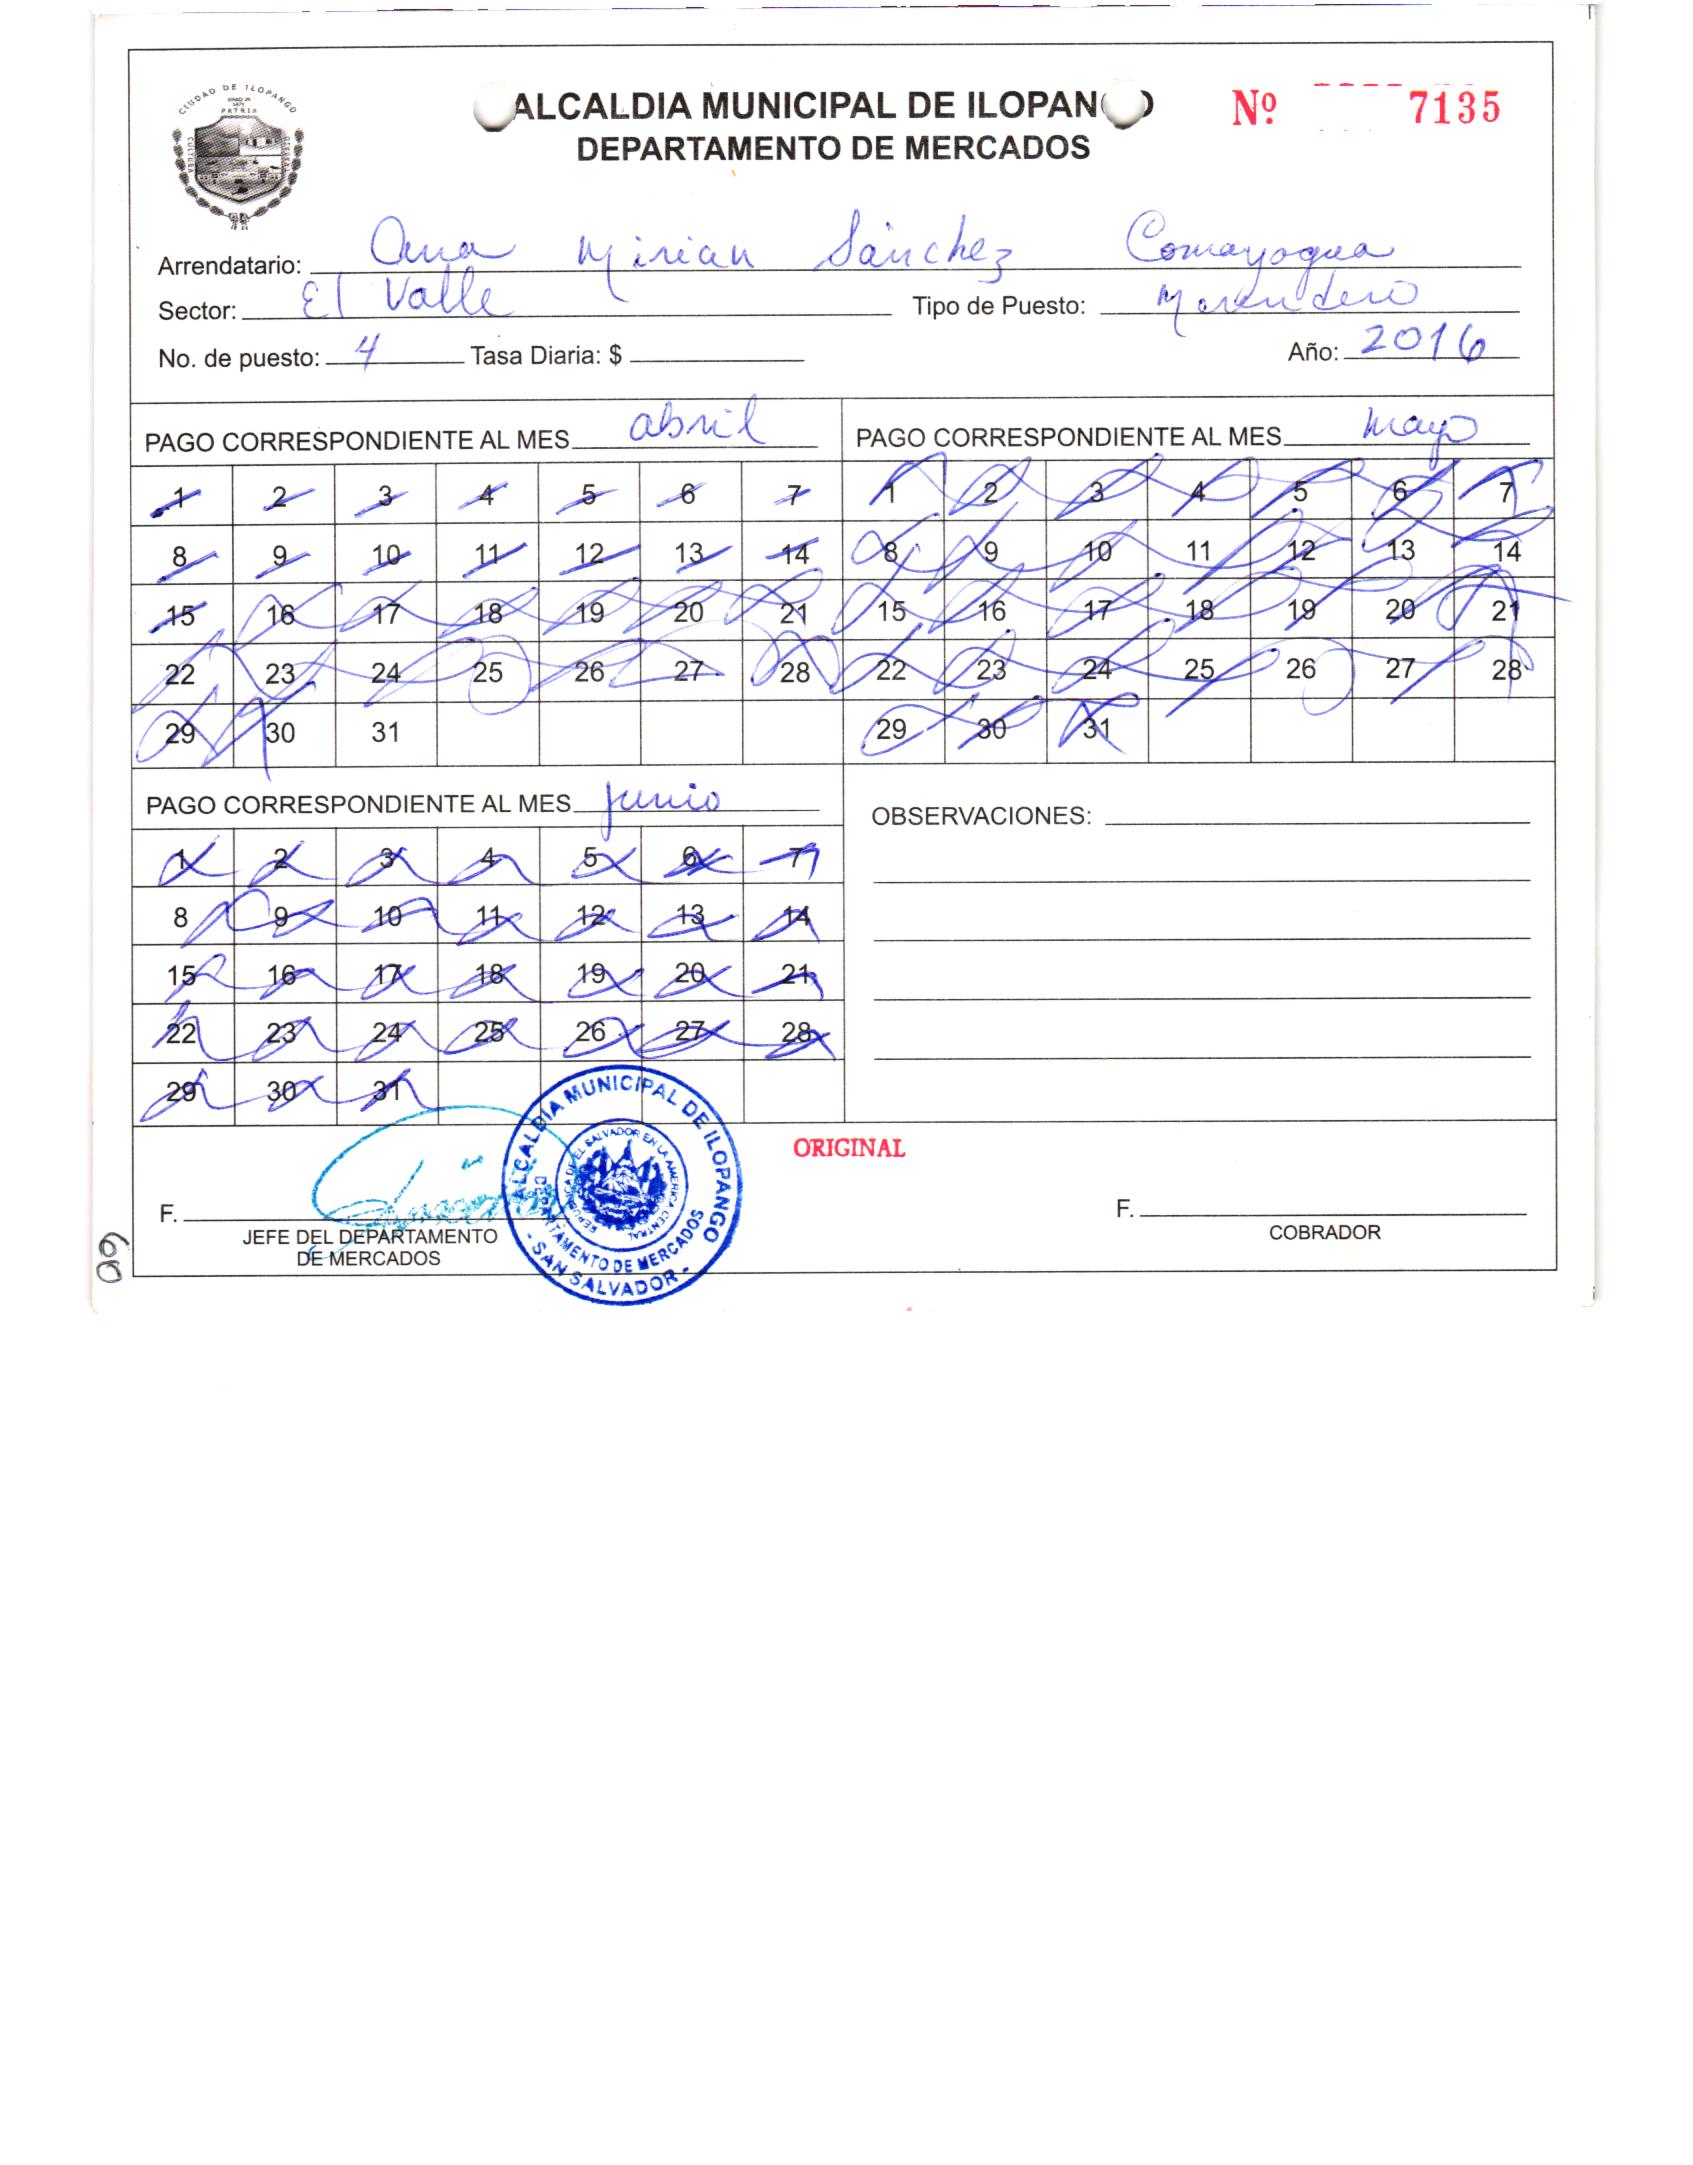 CIUDAD DE ILOPANGO
PATRIA
CULTURA
ALCALDIA MUNICIPAL DE ILOPANGO
DEPARTAMENTO DE MERCADOS
Nº 7135
Arrendatario: Ana Mirian Sánchez Comayogua
Sector: El Valle Tipo de Puesto: Merendero
No. de puesto: 4 Tasa Diaria: $ Año: 2016
PAGO CORRESPONDIENTE AL MES abril
1 2 3 4 5 6 7
8 9 10 11 12 13 14
15 16 17 18 19 20 21
22 23 24 25 26 27 28
29 30 31
PAGO CORRESPONDIENTE AL MES mayo
1 2 3 4 5 6 7
8 9 10 11 12 13 14
15 16 17 18 19 20 21
22 23 24 25 26 27 28
29 30 31
PAGO CORRESPONDIENTE AL MES junio
1 2 3 4 5 6 7
8 9 10 11 12 13 14
15 16 17 18 19 20 21
22 23 24 25 26 27 28
29 30 31
OBSERVACIONES:
ORIGINAL
F.
JEFE DEL DEPARTAMENTO
DE MERCADOS
ALCALDIA MUNICIPAL DE ILOPANGO
REPUBLICA DE EL SALVADOR EN LA AMERICA CENTRAL
DEPARTAMENTO DE MERCADOS
- SAN SALVADOR -
F.
COBRADOR